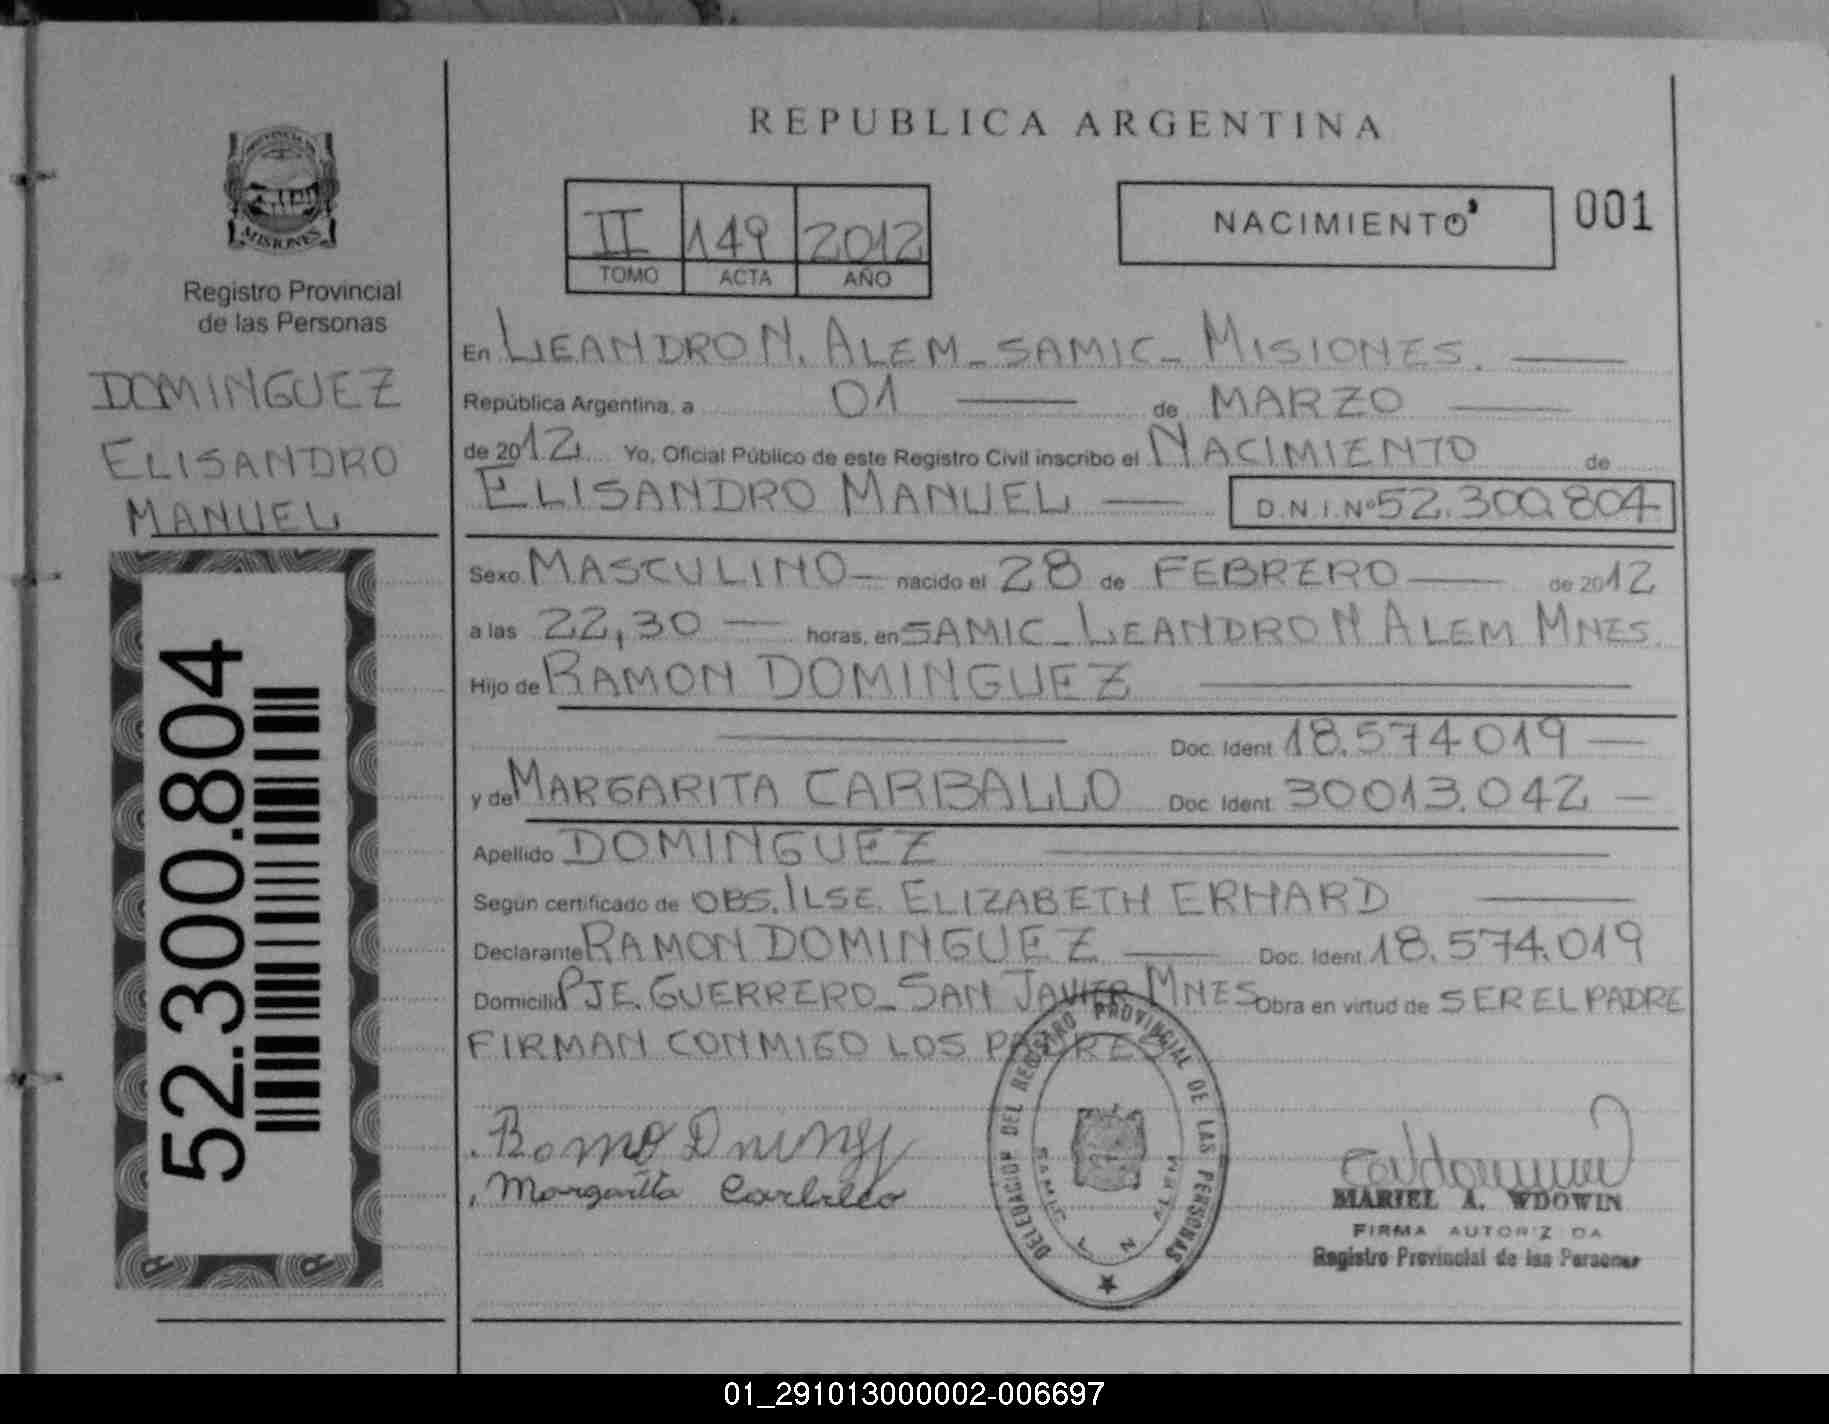 REPUBLICA ARGENTINA
PROVINCIA
MISIONES
Registro Provincial
de las Personas
DOMINGUEZ
ELISANDRO
MANUEL
52.300.804
II 149 2012
TOMO ACTA AÑO
NACIMIENTO
001
En LEANDRO N. ALEM - SAMIC - MISIONES.
República Argentina, a 01 de MARZO
de 2012 Yo, Oficial Público de este Registro Civil inscribo el NACIMIENTO de
ELISANDRO MANUEL D.N.I.Nº 52.300.804
Sexo MASCULINO nacido el 28 de FEBRERO de 2012
a las 22,30 horas, en SAMIC - LEANDRO N ALEM MNES.
Hijo de RAMON DOMINGUEZ
Doc. Ident. 18.574.019
y de MARGARITA CARBALLO Doc. Ident. 30013.042
Apellido DOMINGUEZ
Según certificado de OBS. ILSE. ELIZABETH ERHARD
Declarante RAMON DOMINGUEZ Doc. Ident. 18.574.019
Domicilio PJE. GUERRERO - SAN JAVIER MNES Obra en virtud de SER EL PADRE
FIRMAN CONMIGO LOS PADRES
DELEGACION DEL REGISTRO PROVINCIAL DE LAS PERSONAS
SAMIC
Margarita Carballo
MARIEL A. WDOWIN
FIRMA AUTORIZADA
Registro Provincial de las Personas
01_291013000002-006697